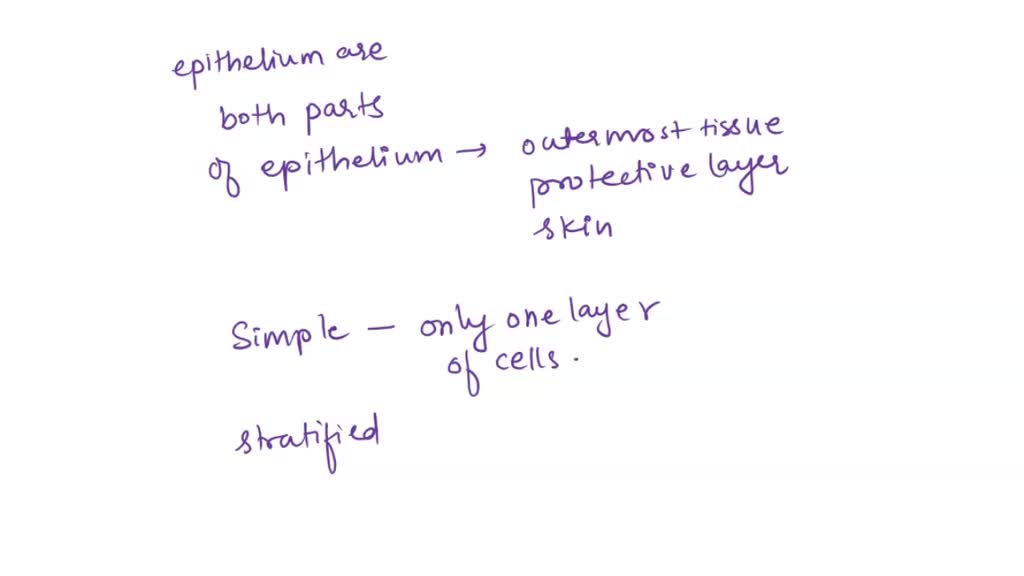 epithelium are
both parts
of epithelium → outermost tissue
protective layer
skin
Simple – only one layer
of cells.
stratified